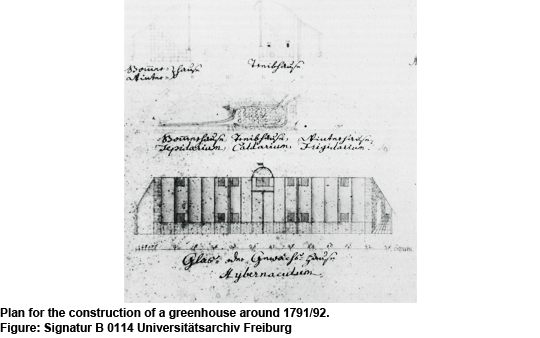 Sommerhaus
Winter-
Treibhaus
Sommerhaus, Treibhaus, Winterhaus,
Tepidarium, Caldarium, Frigidarium.
Glas- oder Gewächs-haus
Hybernaculum
Plan for the construction of a greenhouse around 1791/92.
Figure: Signatur B 0114 Universitätsarchiv Freiburg